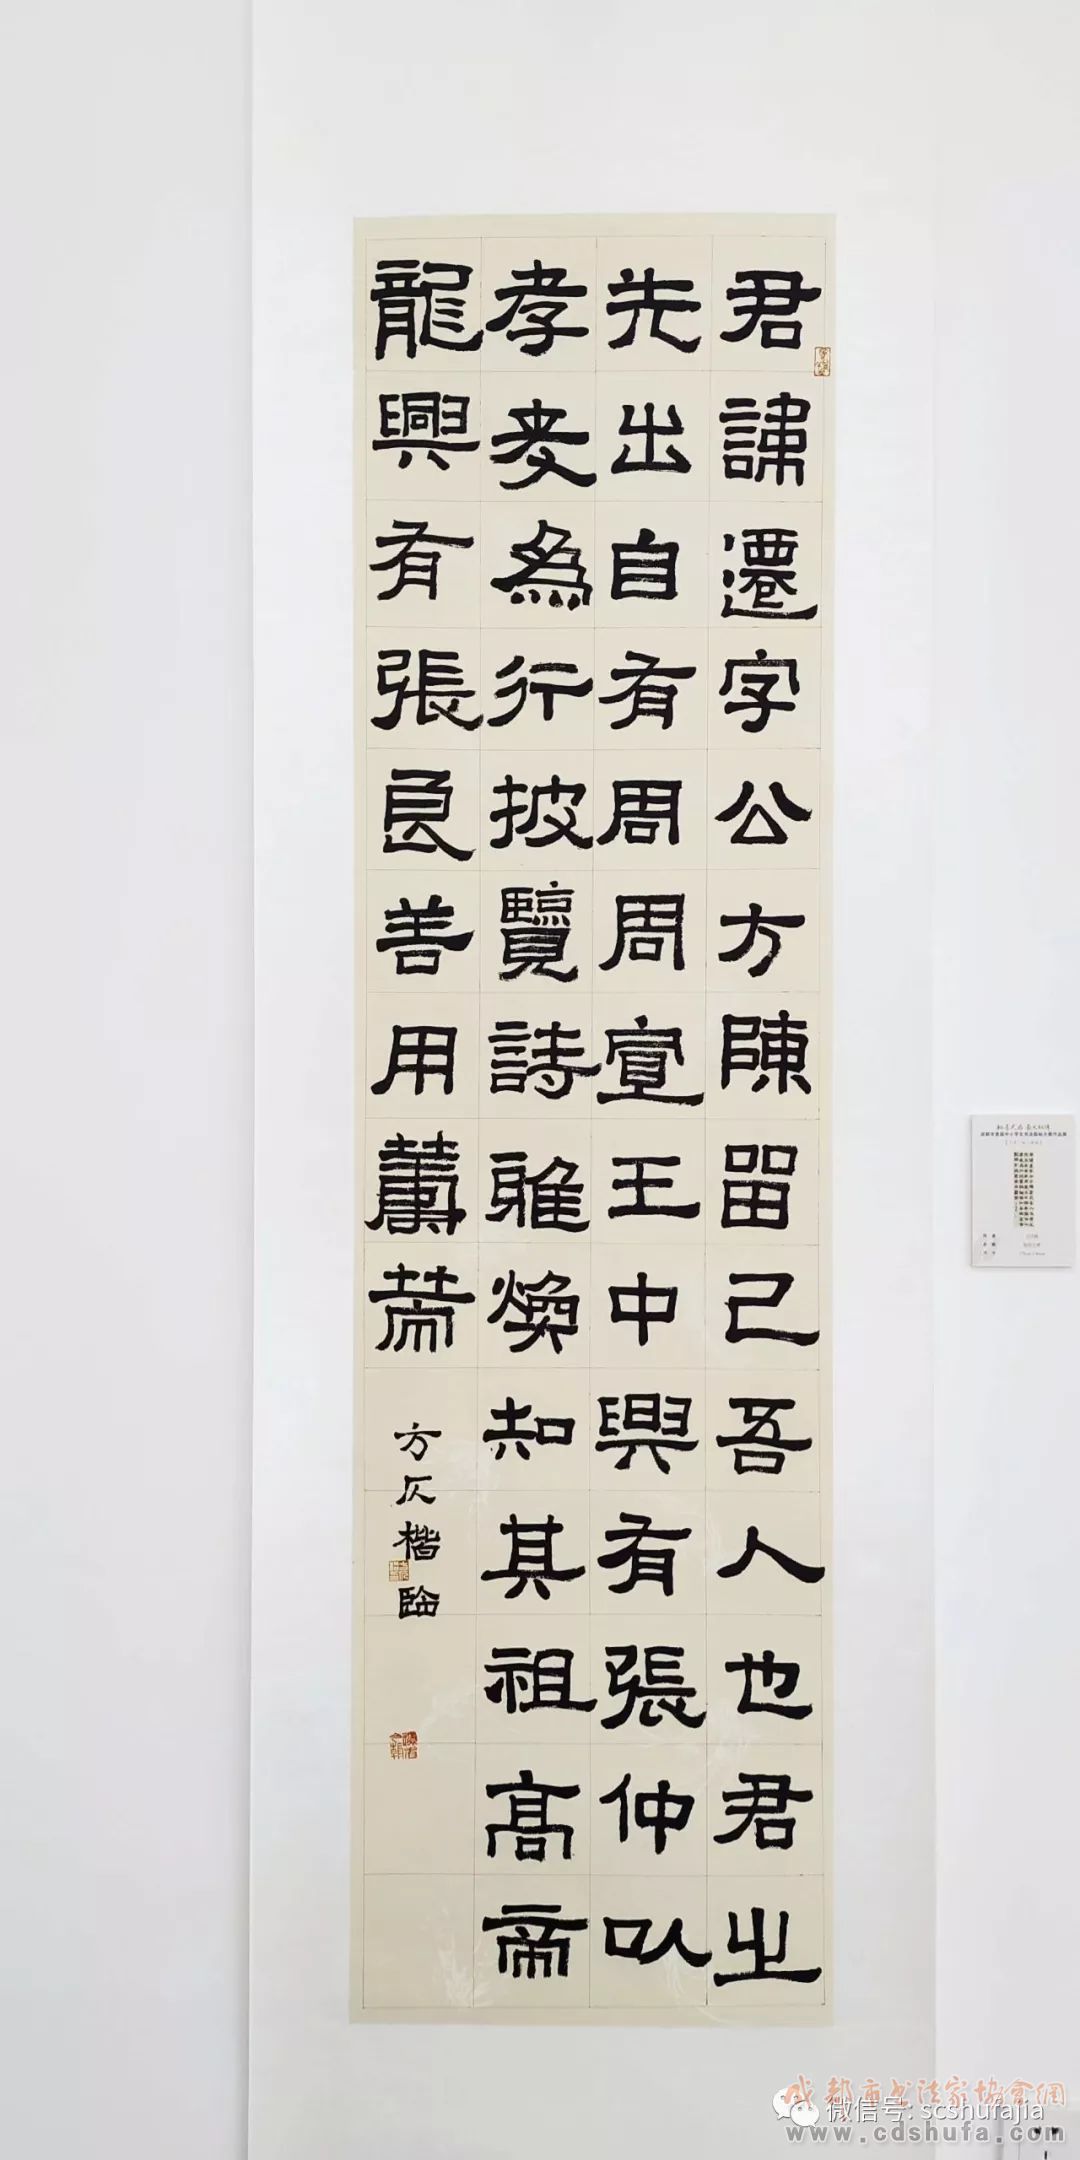 君諱遷字公方陳留己吾人也君之
先出自有周周宣王中興有張仲以
孝友為行披覽詩雅煥知其祖高帝
龍興有張良善用籌策
方仄楷臨
成都市书法家協會網
微信号: scshurajia
www.cdshufa.com